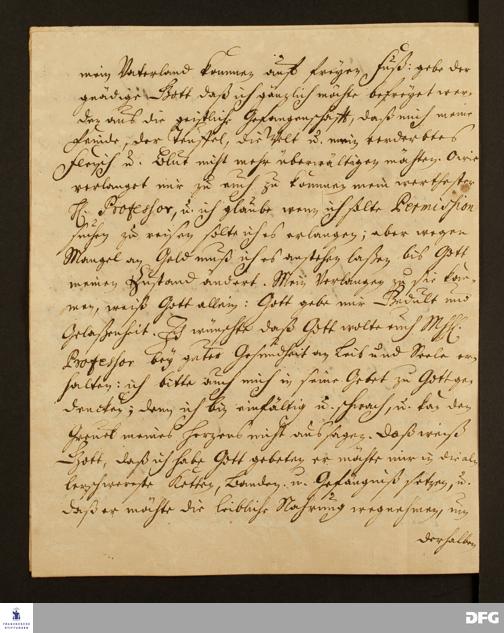 mein Vaterland kommen auff freyen Fuß: gebe der
gnädige Gott daß ich gänzlich möchte befreyet wer-
den aus die geistliche Gefangenschafft, daß mich meine
Feinde, der Teuffel, die Welt u. mein verderbtes
Fleisch u. Blut nicht mehr überwältigen möchten. Wie
verlanget mir zu euch zu kommen mein werthester
H. Professor, u. ich glaube wenn ich solte Permission
suchen zu reisen solte ich es erlangen; aber wegen
Mangel an Geld muß ich es anstehen laßen bis Gott
meinen Zustand andert. Mein Verlangen zu sie kom-
men, weiß Gott allein: Gott gebe mir Gedult und
Gelaßenheit. Ich wünschte daß Gott wolte euch
Professor bey guter Gesundheit an Leib und Seele er-
halten: ich bitte auch mich in seine Gebet zu Gott ge-
dencken; denn ich bin einfältig u. schwach, u. kan den
meines Hertzens nicht aussagen. Daß weiß
Gott, daß ich habe Gott gebeten er möchte mir in die al-
lerschwereste Ketten, Banden u. Gefängniß setzen, u.
daß er möchte die leibliche Nahrung wegnehmen, um
derhalben
FRANCKESCHE STIFTUNGEN
DFG